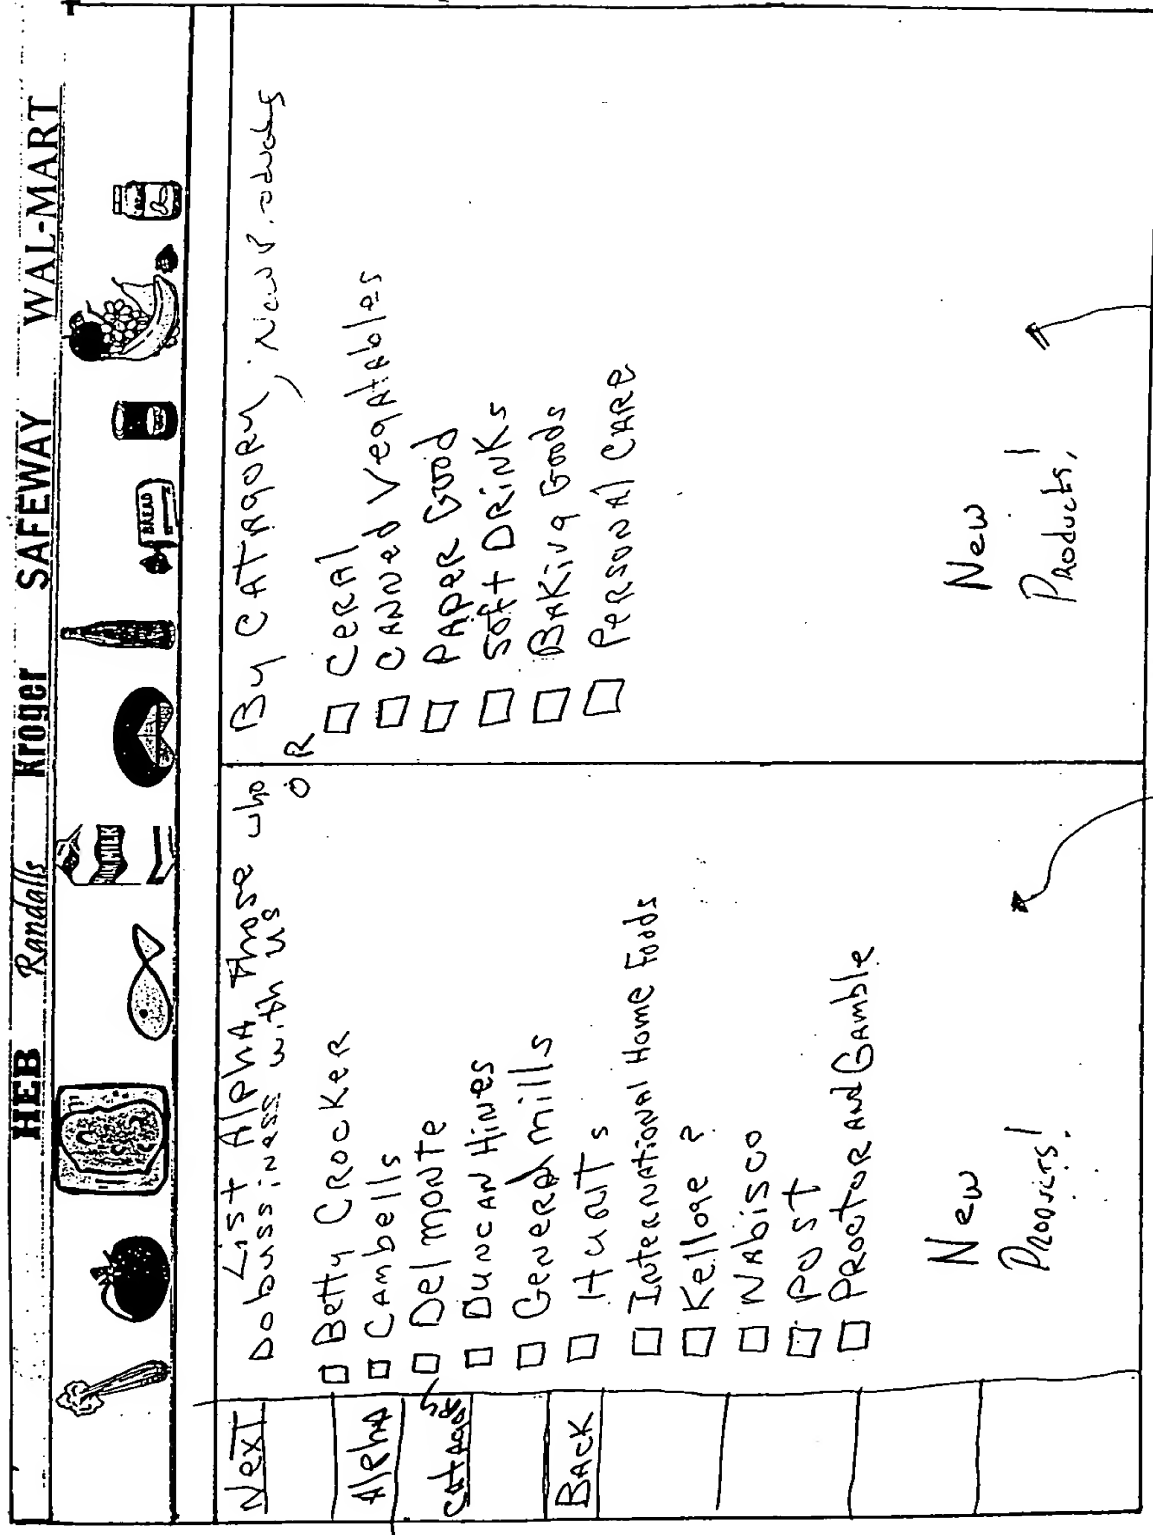 HEB Randalls Kroger SAFEWAY WAL-MART
MILK
BREAD
Next
Alpha
CATAGORY
BACK
List Alpha those who
Do bussiness with us
Betty CROCKER
CAmbells
Del monte
Duncan Hines
General mills
HUNTs
INTERNATIONAL Home Foods
Kelloge ?
NAbisco
POST
PROCTOR AND GAmble
New
PRODUCTS!
OR
By CATAGORY, New Products
CERAL
CANNed VegATAbles
PAPER Good
Soft DRiNKs
BAKiNg Goods
PERSONAl CARE
New
PRoducts!